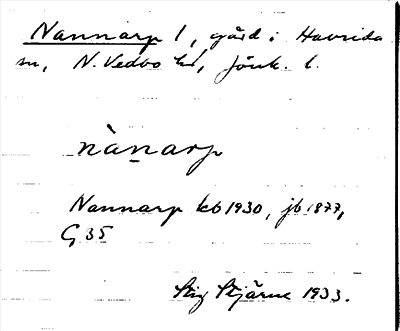 Nannarp 1, gård i Haurida
sn, N. Vedbo hd, Jönk. l.
nànarp
Nannarp kb 1930, jb 1877,
G 35
Stig Stjärne 1933.